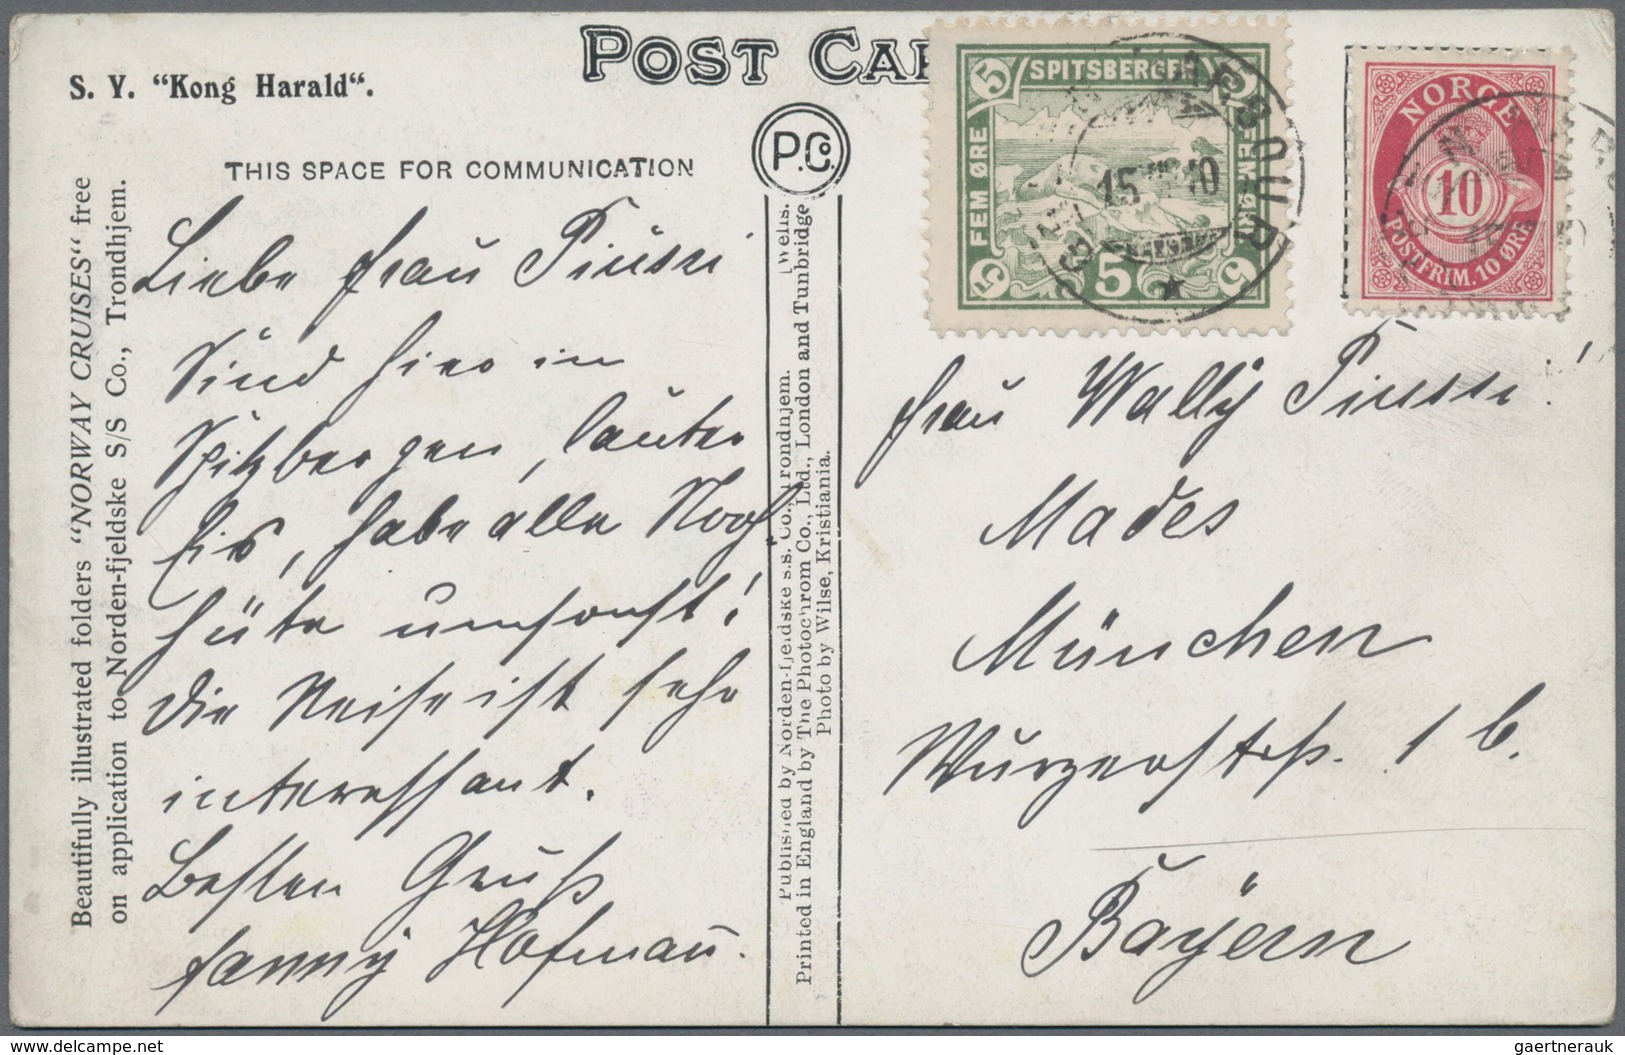 POST CAR
S. Y. "Kong Harald".
THIS SPACE FOR COMMUNICATION
P.Co.
Beautifully illustrated folders "NORWAY CRUISES" free
on application to Norden-fjeldske S/S Co., Trondhjem.
Liebe Frau
Sind hier in
Spitzbergen, lauter
Eis, habe alle Noch
Hüte umsonst!
Die Reise ist sehr
interessant.
Besten Gruß
Fanny Hofmau.
Published by Norden-fjeldske s.s. Co., Trondhjem.
Printed in England by The Photochrom Co., Ltd., London and Tunbridge Wells.
Photo by Wilse, Kristiania.
5 SPITSBERGEN 5
FEM ØRE
5 5 5
15 VII 10
NORGE
10
POSTFRIM. 10 ØRE
Frau Wally
München
Wurzerstrß. 1 b.
Bayern
gaertnerauk